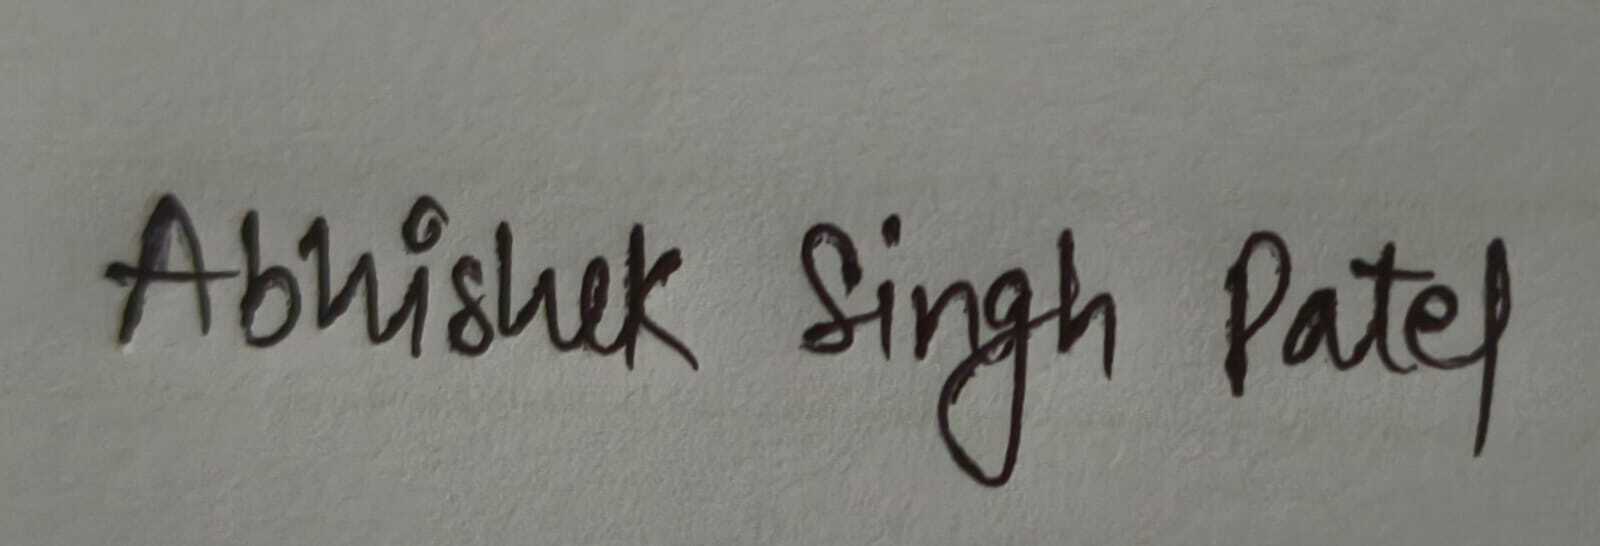 Abhishek Singh Patel